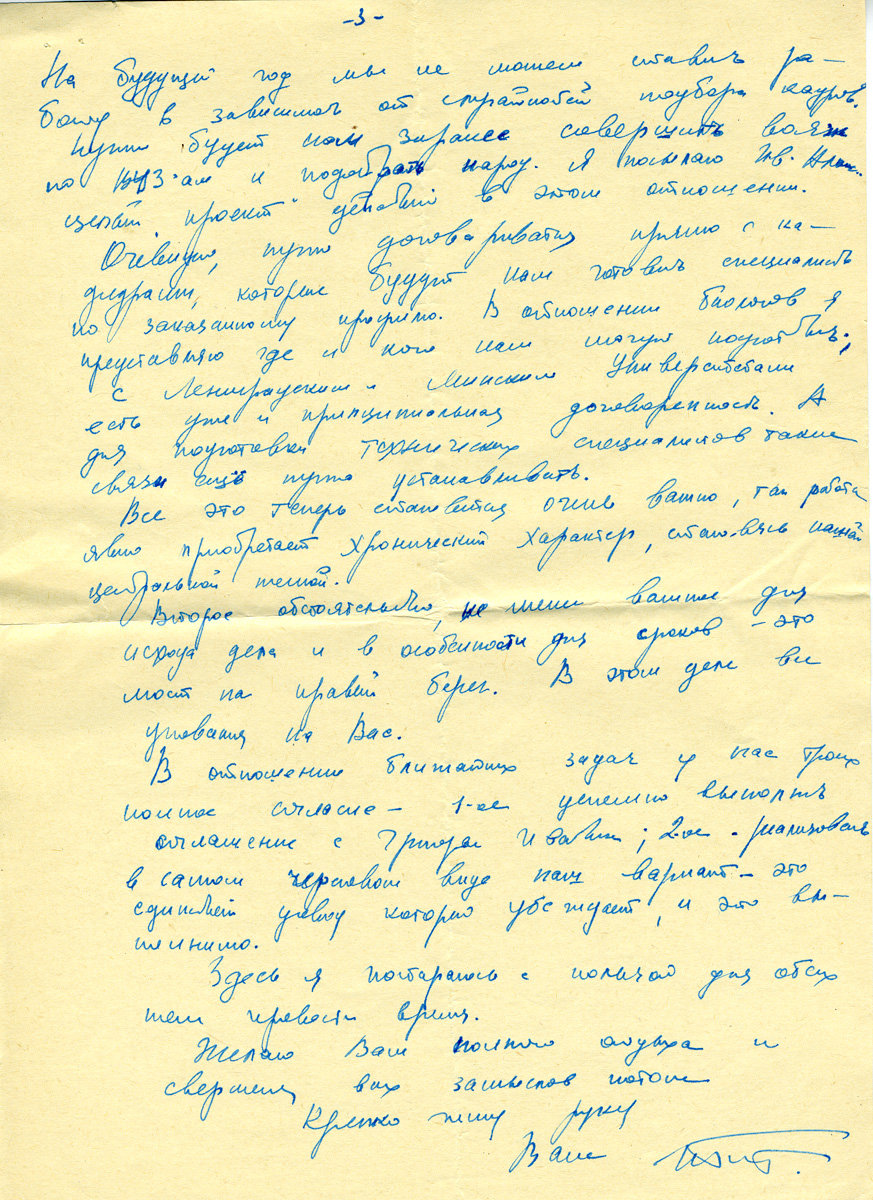 -3-
На будущий год мы не можем ставить ра-
боту в зависимость от случайностей подбора кадров.
Нужно будет нам заранее совершить вояж
по ВУЗ-ам и подобрать народ. Я посылаю
целый проект действий в этом отношении.
Очевидно, нужно договариваться прямо с ка-
федрами, которые будут нам готовить специалистов
по заказанному профилю. В отношении биологов я
представляю где и кого нам могут подготовить;
с Ленинградским и Минским Университетами
есть уже и принципиальная договоренность. А
для подготовки технических специалистов такие
связи ещё нужно устанавливать.
Все это теперь становится очень важно, так работа
явно приобретает хронический характер, становясь нашей
центральной темой.
Второе обстоятельство, не менее важное для
исхода дела и в особенности для сроков - это
мост на правый берег. В этом деле все
упования на Вас.
В отношении ближайших задач у нас троих
полное согласие - 1-ое успешно выполнить
соглашение с 2-ое - реализовать
в самом черновом виде наш вариант - это
единственный который убеждает, и это вы-
полнимо.
Здесь я постараюсь с пользой для обеих
тем провести время.
Желаю Вам полного отдыха и
свершения всех замыслов потом
Крепко жму руку
Ваш